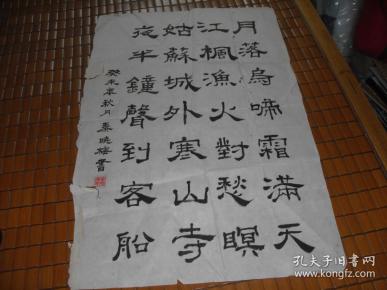 月落烏啼霜滿天
江楓漁火對愁瞑
姑蘇城外寒山寺
夜半鐘聲到客船
癸未年秋月秦曉梅書
孔夫子旧书网